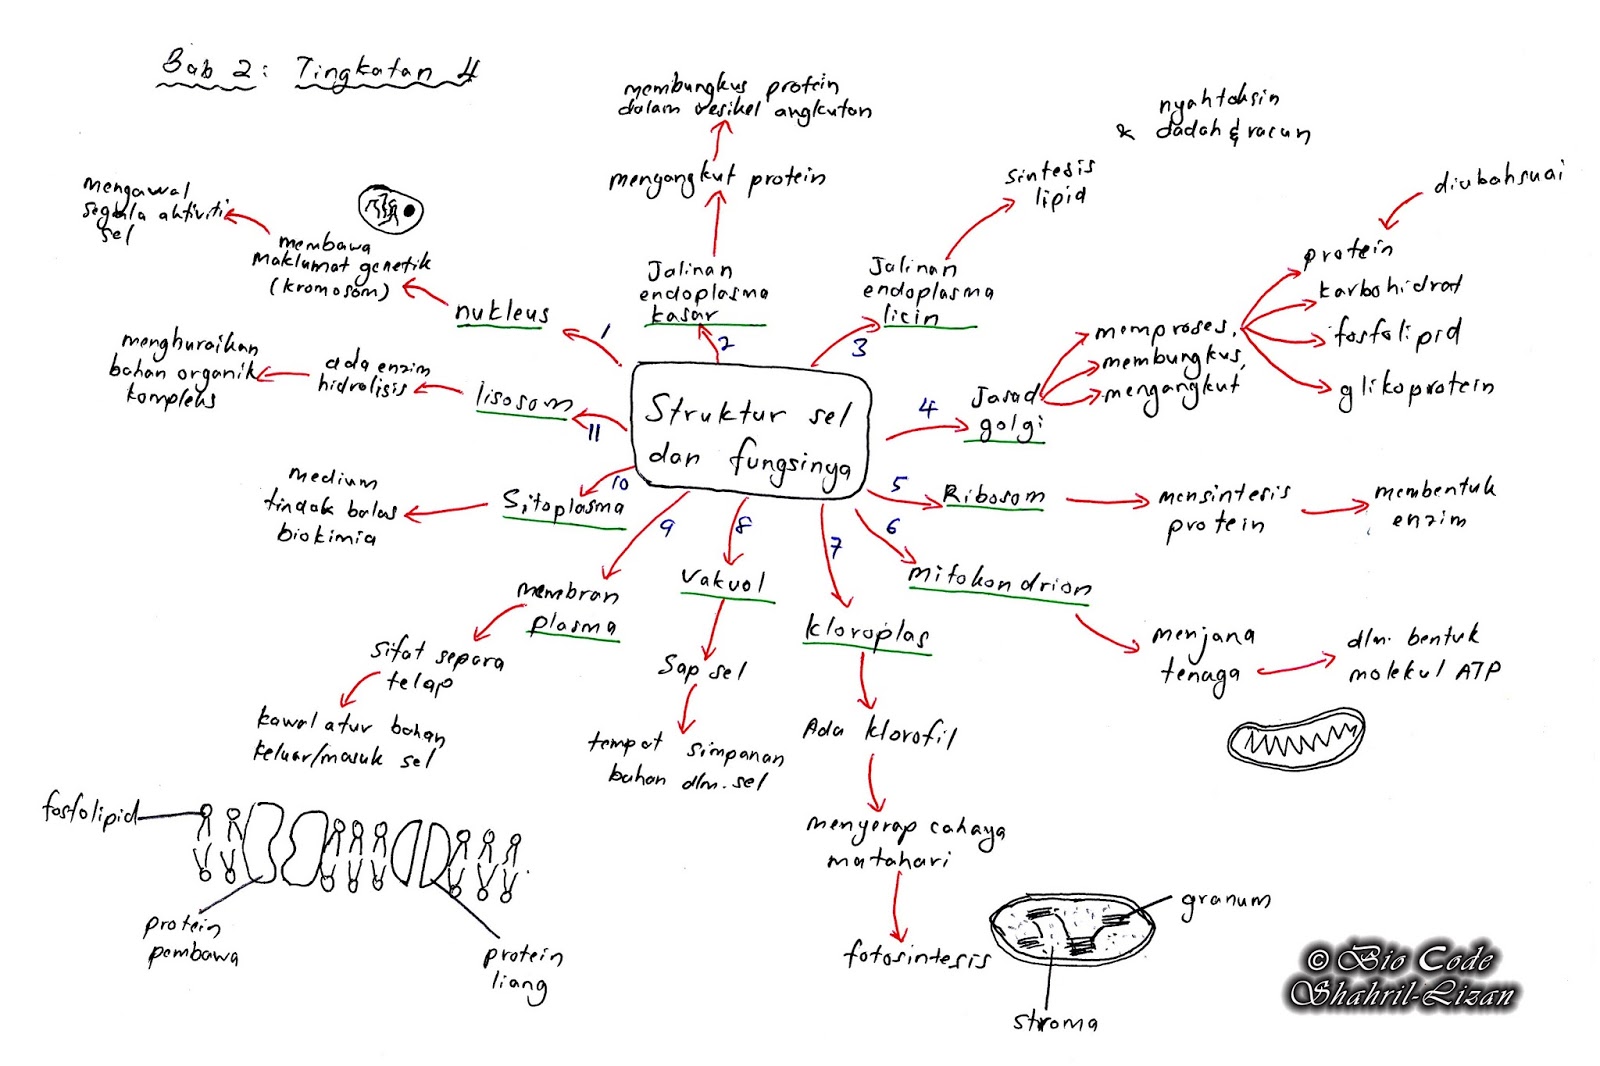 Bab 2: Tingkatan 4
Struktur sel
dan fungsinya
1
nukleus
membawa
maklumat genetik
(kromosom)
mengawal
segala aktiviti
sel
2
Jalinan
endoplasma
kasar
mengangkut protein
membungkus protein
dalam vesikel angkutan
3
Jalinan
endoplasma
licin
sintesis
lipid
nyahtoksin
& dadah & racun
4
Jasad
golgi
memproses,
membungkus,
mengangkut
protein
diubahsuai
karbohidrat
fosfolipid
glikoprotein
5
Ribosom
mensintesis
protein
membentuk
enzim
6
mitokondrion
menjana
tenaga
dlm. bentuk
molekul ATP
7
kloroplas
Ada klorofil
menyerap cahaya
matahari
fotosintesis
granum
stroma
8
Vakuol
Sap sel
tempat simpanan
bahan dlm. sel
9
membran
plasma
sifat separa
telap
kawal atur bahan
keluar/masuk sel
fosfolipid
protein
pembawa
protein
liang
10
Sitoplasma
medium
tindak balas
biokimia
11
lisosom
ada enzim
hidrolisis
menghuraikan
bahan organik
kompleks
© Bio Code
Shahril-Lizan